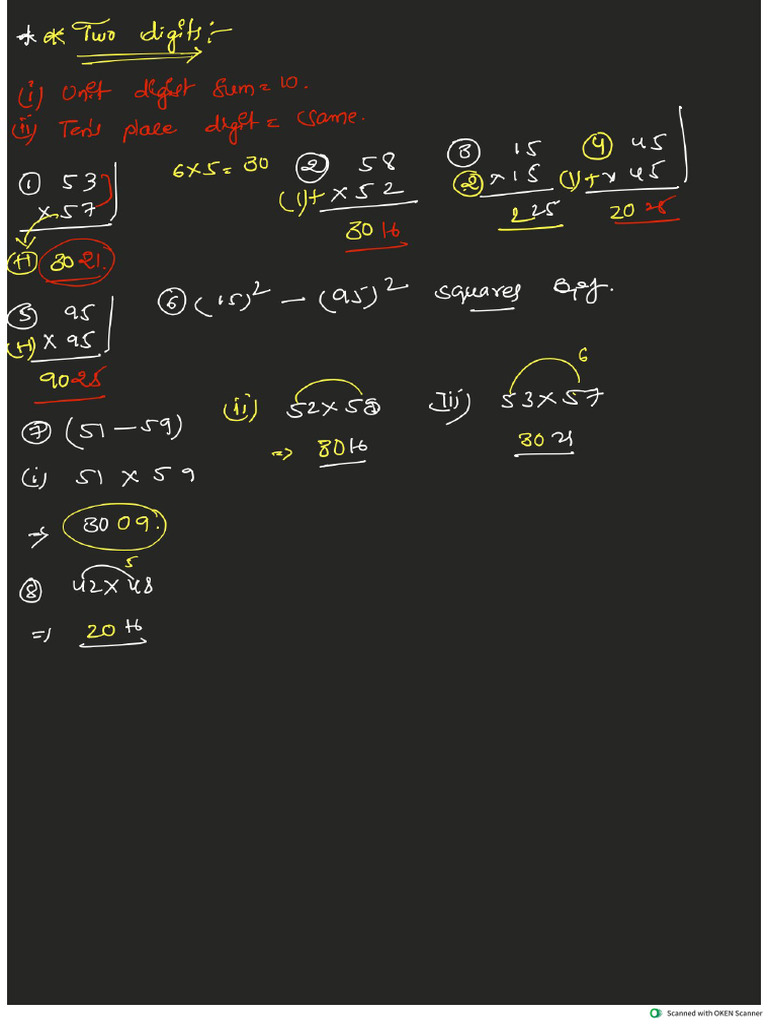 * * Two digits:-
(i) Unit digit sum = 10.
(ii) Ten's place digit = same.
① 53
× 57
(+1) 30 21.
6 × 5 = 30
② 58
(1)+ × 52
30 16
③ 15
② × 15
2 25
④ 45
(1)+ × 45
20 25
⑤ 95
(+1) × 95
90 25
⑥ (15)² — (95)² squares
⑦ (51 — 59)
(i) 51 × 59
⇒ 30 09.
(ii) 52 × 58
⇒ 30 16
(iii) 53 × 57
6
30 21
⑧ 42 × 48
5
⇒ 20 16
Scanned with OKEN Scanner